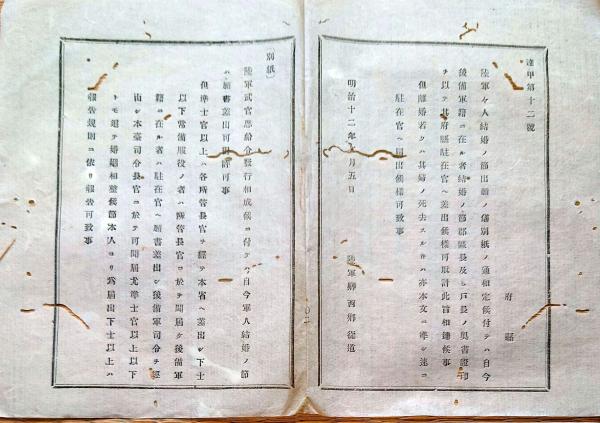 達甲第十二號
府縣
陸軍々人結婚ノ節出願ノ儀別紙ノ通相定候付テハ自今
後備軍籍ニ在ル者結婚ノ節郡區長及ヒ戸長ノ奥書證印
ヲ以テ其府縣駐在官ヘ差出候樣可取計此旨相達候事
但離婚若クハ其婦ノ死去スル者ハ亦本文ニ準シ速ニ
駐在官ヘ届出候樣可致事
明治十二年 月五日
陸軍卿西鄕從道
〔別紙〕
陸軍武官恩給令發行相成候ニ付テハ自今軍人結婚ノ節
ハ願書差出可 許可事
但準士官以上ハ各所管長官ヲ經テ本省ヘ差出シ下士
以下常備服役ノ者ハ所管長官ニ於テ聞届ケ後備軍
籍ニ在ル者ハ駐在官ヘ願書差出シ後備軍司令ヲ經
由シ本臺司令長官ニ於テ可聞届尤準士官以上以下
トモ追テ婚姻相整候節本人ヨリ爲届出下士以上ハ
報告規則ニ依リ報告可致事